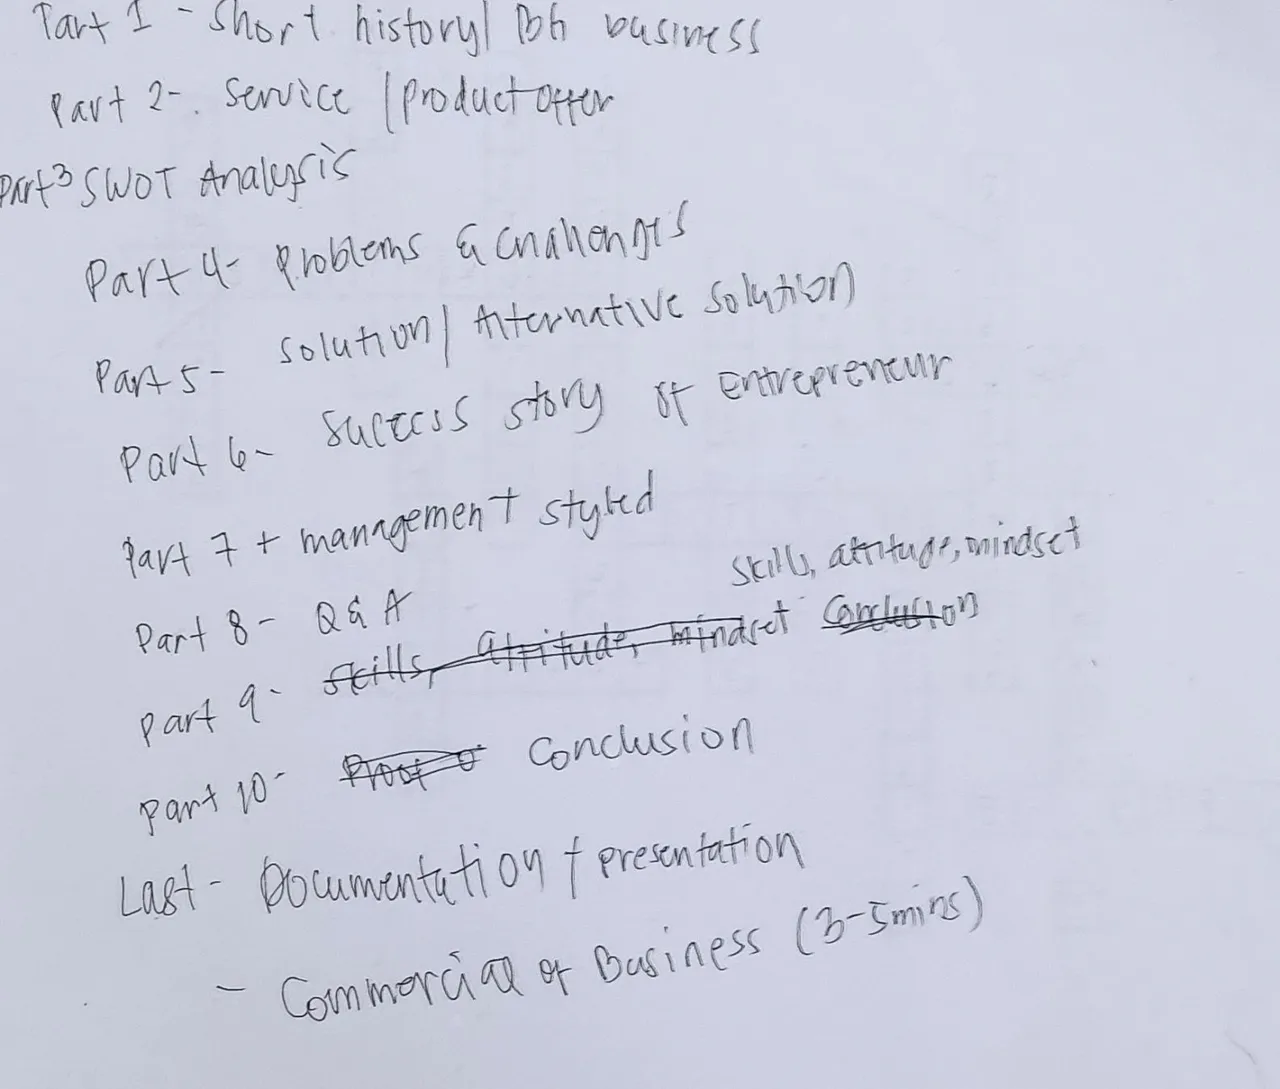 Part 1 - Short history| business
Part 2-. Service | product offer
Part 3 SWOT Analysis
Part 4- Problems & challenges
Part 5- solution| Alternative solution
Part 6- success story of Entrepreneur
Part 7 + management styled
skills, attitude, mindset
Part 8- Q & A
Part 9- skills, attitude, mindset Conclusion
Part 10- Conclusion
Last- Documentation + presentation
- Commercial of Business (3-5mins)